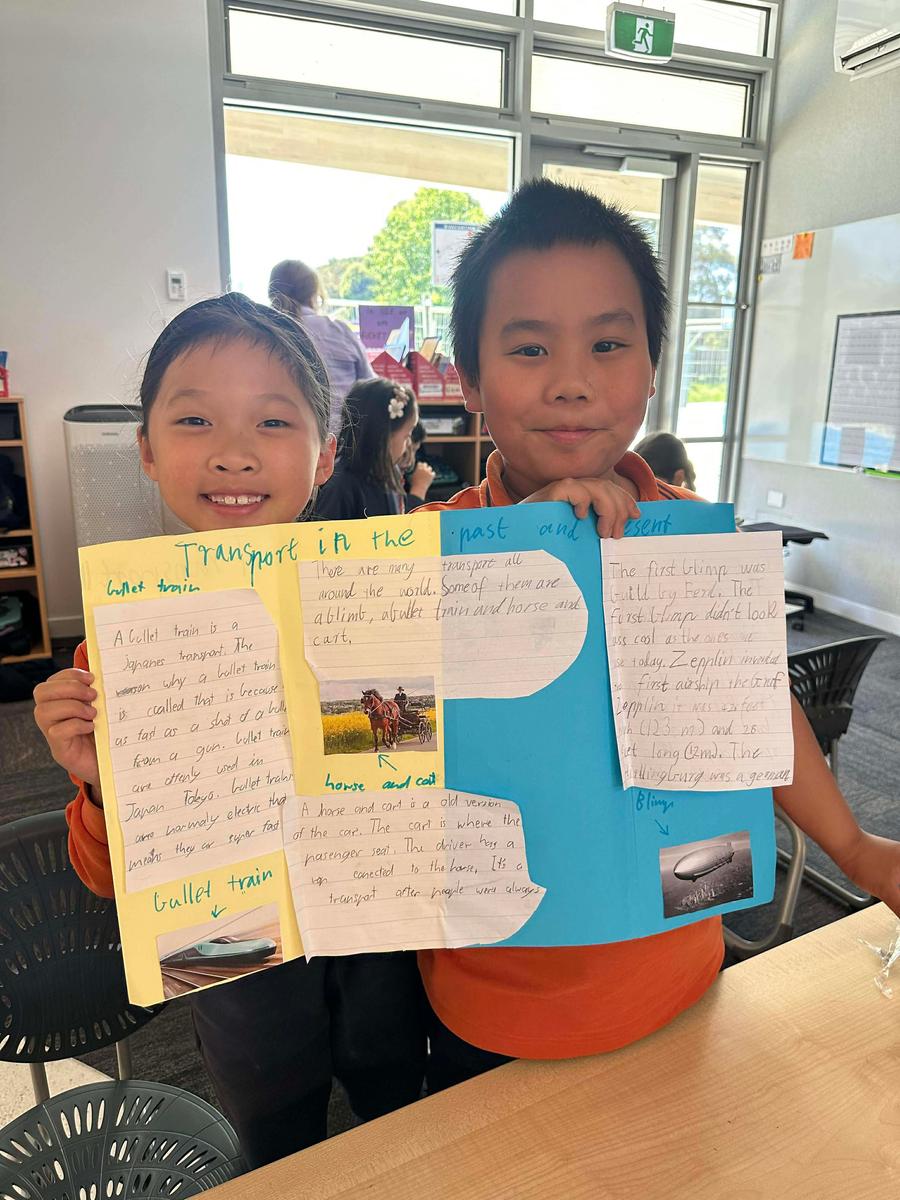 Transport in the past and esent
bullet train
A bullet train is a
Japanes transport. The
why a bullet train
is called that is because
as fast as a shot of a bull
from a gun. bullet train
are oftenly used in
Japan Tokyo. bullet trains
are normaly electric tha
means they ar super fast
bullet train
There are many transport all
around the world. Some of them are
a blimb, a bullet train and horse and
cart.
horse and cart
A horse and cart is a old version
of the car. The cart is where the
pasenger seat. The driver has a
conected to the horse. It's a
transport after people were always
The first blimp was
build by Ferd. The
first blimp didn't look
ass cool as the ones
se today. Zepplin invented
first airship the Graf
Zepplin it was
(123 m) and 26
et long (12m). The
was a german
Blimp